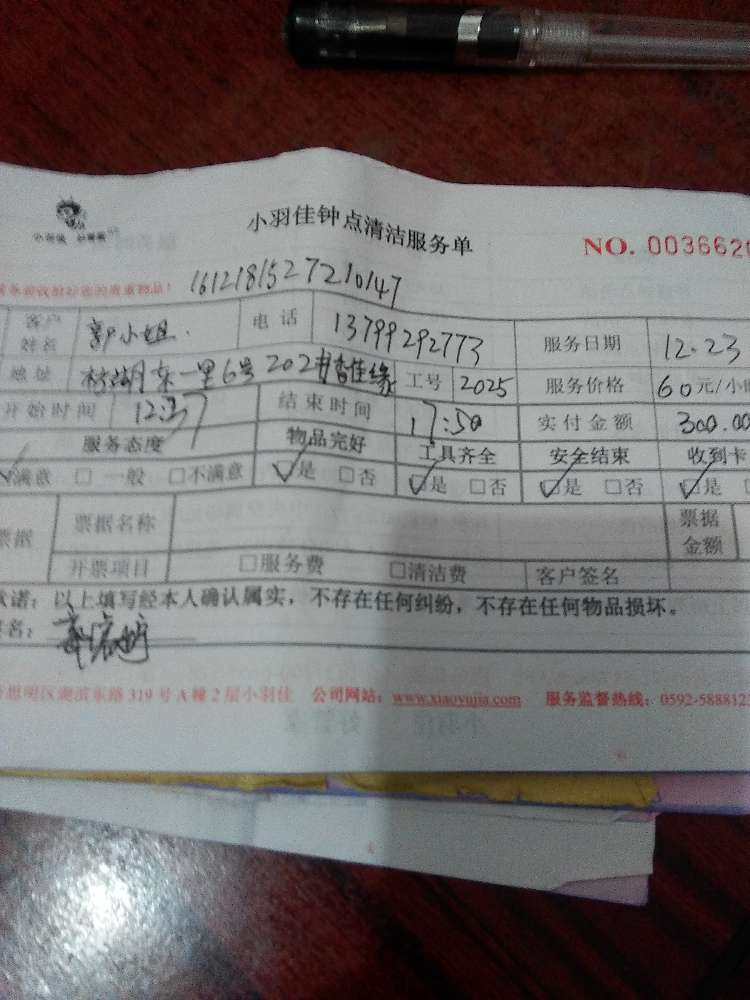 小羽佳钟点清洁服务单
NO. 0036620
1612181527210147
客户姓名 郭小姐 电话 13799292773 服务日期 12.23
地址 东一里6号202 书香佳缘 工号 2025 服务价格 60元/小时
开始时间 12:37 结束时间 17:50 实付金额 300.00
服务态度 物品完好 工具齐全 安全结束 收到卡
☑满意 □一般 □不满意 ☑是 □否 ☑是 □否 ☑是 □否 ☑是
票据 票据名称 票据金额
开票项目 □服务费 □清洁费 客户签名
承诺：以上填写经本人确认属实，不存在任何纠纷，不存在任何物品损坏。
签名：
思明区湖滨东路319号A幢2层小羽佳 公司网站：www.xiaoyujia.com 服务监督热线：0592-588812